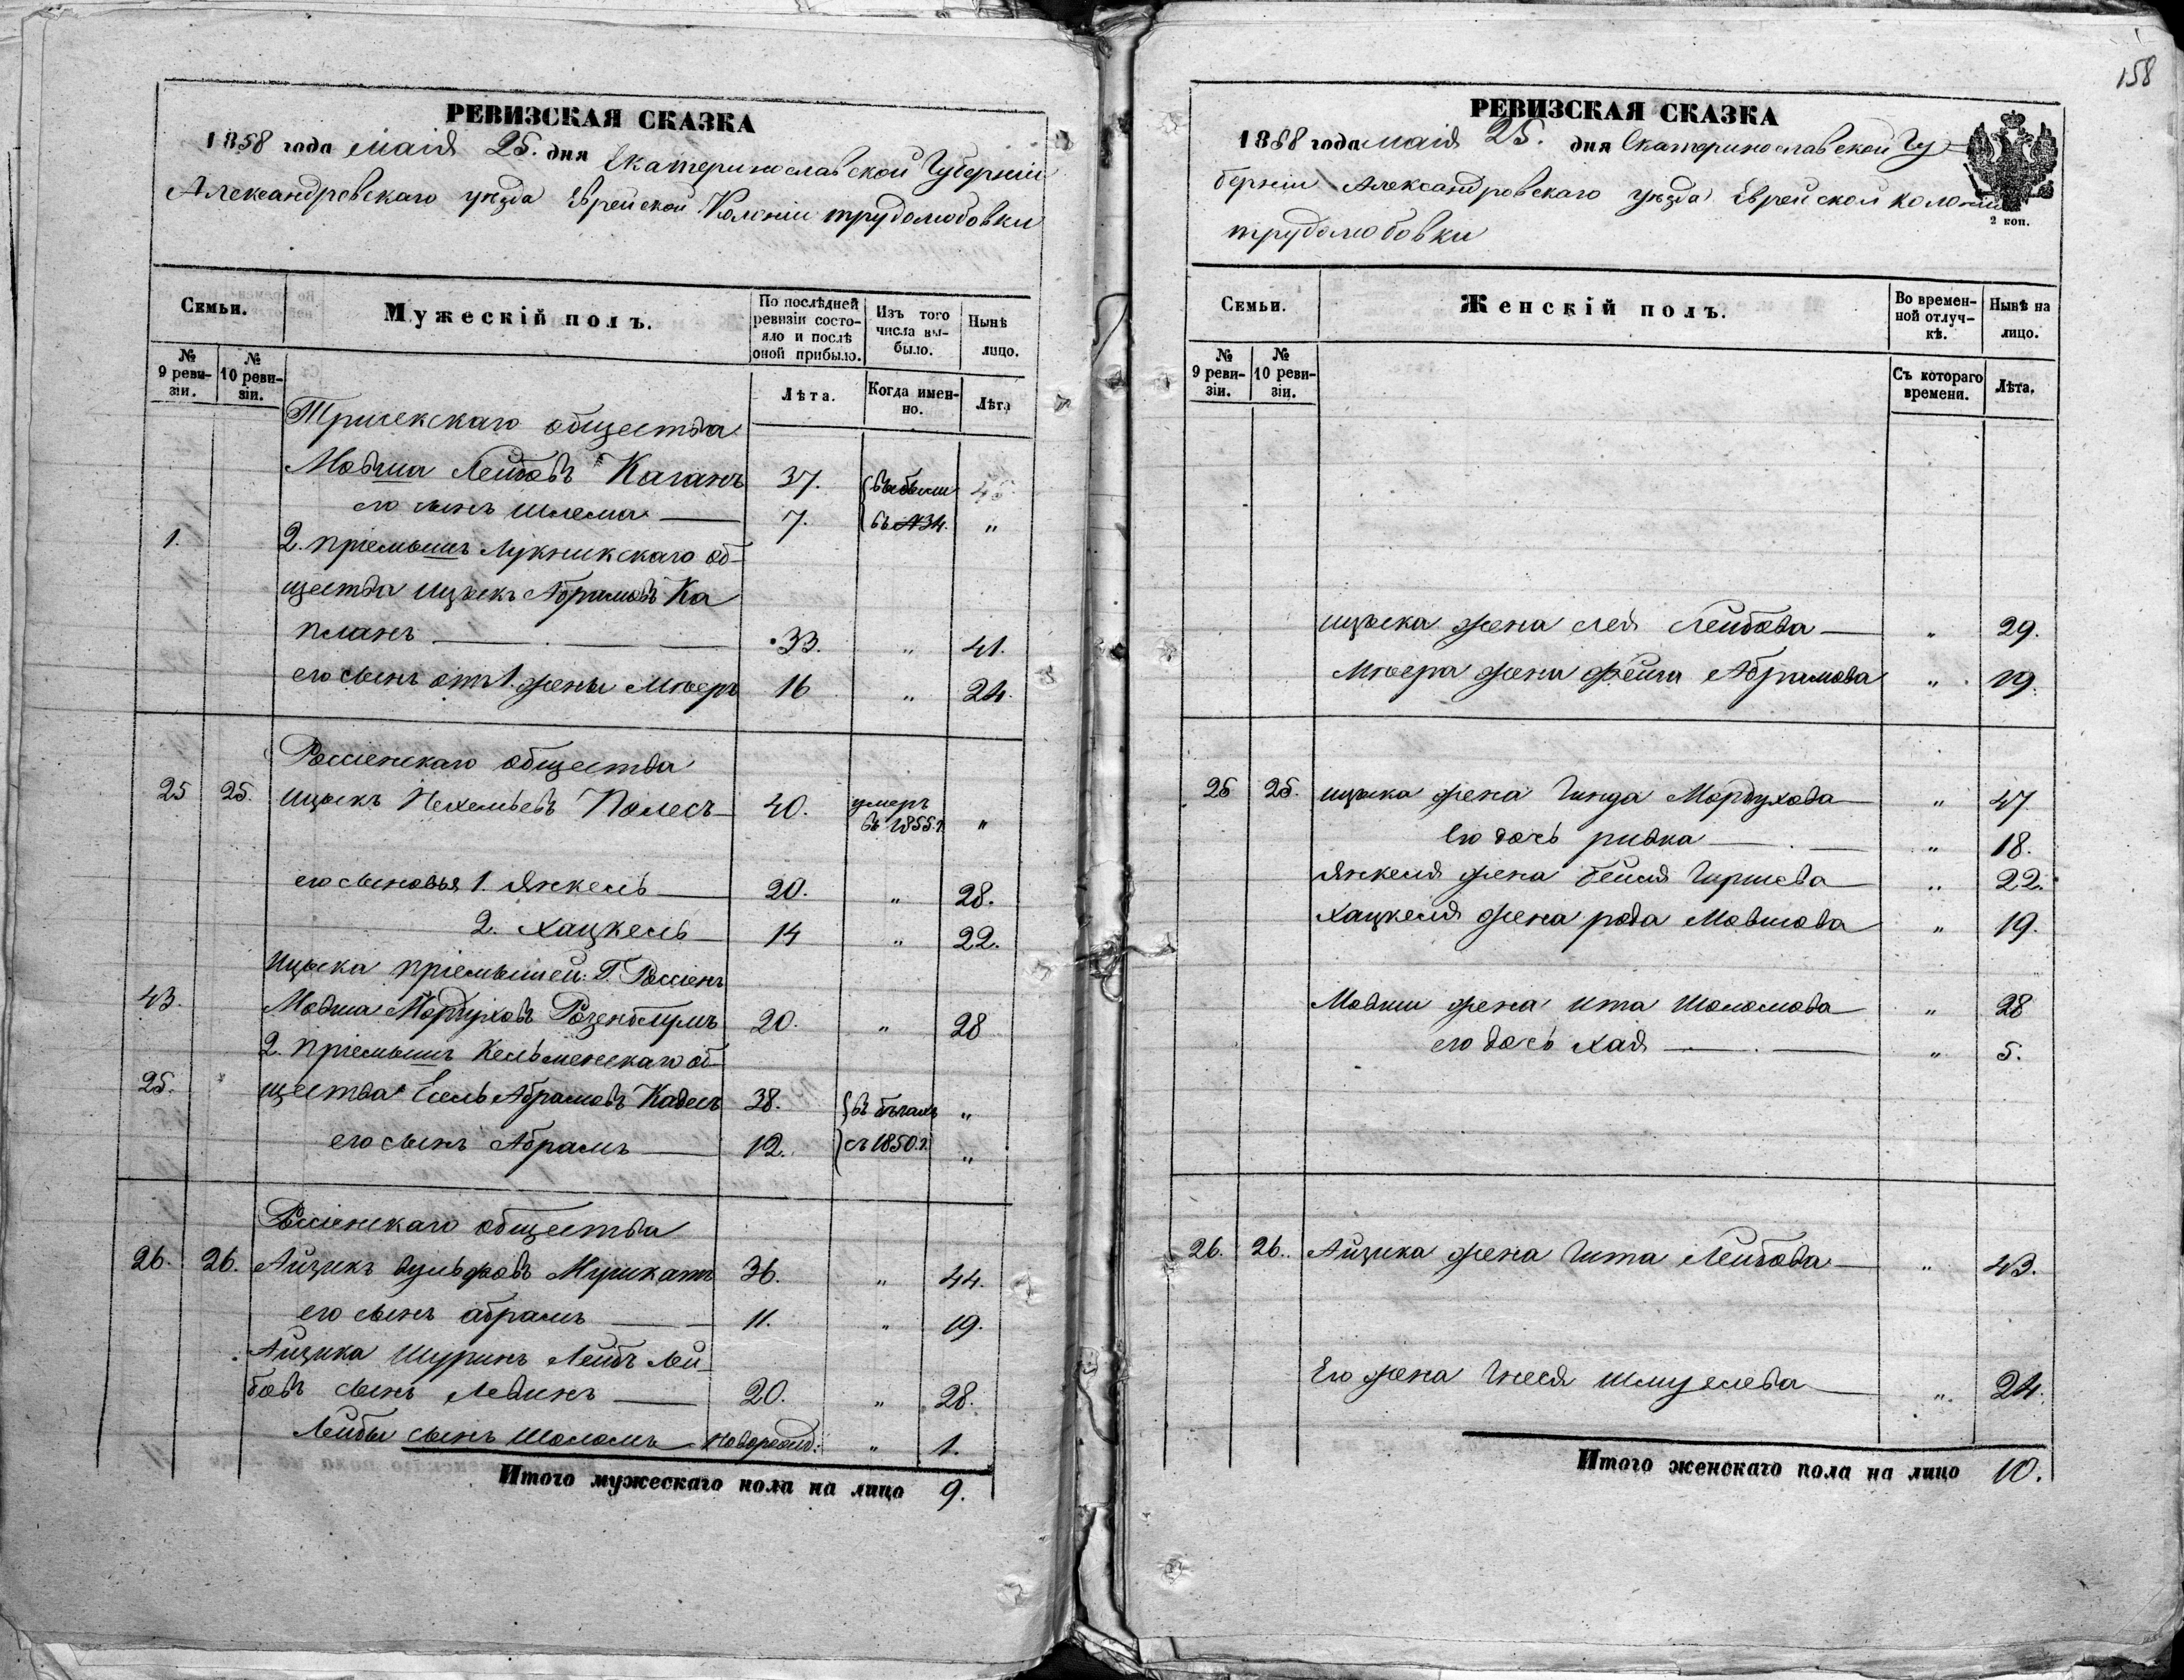 РЕВИЗСКАЯ СКАЗКА
1858 года маія 25. дня Екатеринославской Губерніи
Александровскаго уѣзда Еврейской Колоніи трудолюбовки
Семьи.
Мужескій полъ.
По послѣдней ревизіи состояло и послѣ оной прибыло.
Изъ того числа выбыло.
Нынѣ лицо.
№ 9 ревизіи.
№ 10 ревизіи.
Лѣта.
Когда именно.
Лѣта
общества
Мовша Лейбовъ Каганъ 37. 45
его сынъ Шлема 7. въ №34. "
1. 2. пріемышъ Лукникскаго об-
щества Ицыкъ Абрамовъ Ка
планъ 33. " 41.
его сынъ отъ 1. жены Мееръ 16 " 24.
Россіенскаго общества
25 25. Ицыкъ Полесъ 40. умеръ въ 1855.г. "
его сыновья 1. Янкель 20. " 28.
2. Хацкель 14 " 22.
Ицыка пріемышей: Россіенъ
43. Мовша Мордуховъ Розенблумъ 20. " 28
2. пріемышъ Кельменскаго об-
25. щества Абрамовъ 38. въ бѣгахъ "
его сынъ Абрамъ 12. съ 1850.г. "
Россіенскаго общества
26. 26. Айзикъ Вульфовъ 36. " 44.
его сынъ абрамъ 11. " 19.
Айзика Шуринъ Лейбъ Лей-
бовъ сынъ Левинъ 20. " 28.
Лейбы сынъ Шоломъ Новорожд: " 1.
Итого мужескаго пола на лицо 9.
158
РЕВИЗСКАЯ СКАЗКА
1858 года маія 25. дня Екатеринославской Гу
берніи Александровскаго уѣзда Еврейской колоніи
трудолюбовки
2 коп.
Семьи.
Женскій полъ.
Во временной отлучкѣ.
Нынѣ на лицо.
№ 9 ревизіи.
№ 10 ревизіи.
Съ котораго времени.
Лѣта.
ицыка жена Лея Лейбова " 29.
Меера жена Фейга Абрамова " 19.
25 25. ицыка жена Гинда Мордухова " 47
его дочь ривка " 18.
Янкеля жена бейля Гиршева " 22.
Хацкеля жена рода Мовшова " 19.
Мовши жена ита Шоломова " 28
его дочь хая " 5.
26. 26. Айзика жена Гита Лейбова " 43.
Его жена Гнеся Шмуелева " 24.
Итого женскаго пола на лицо 10.